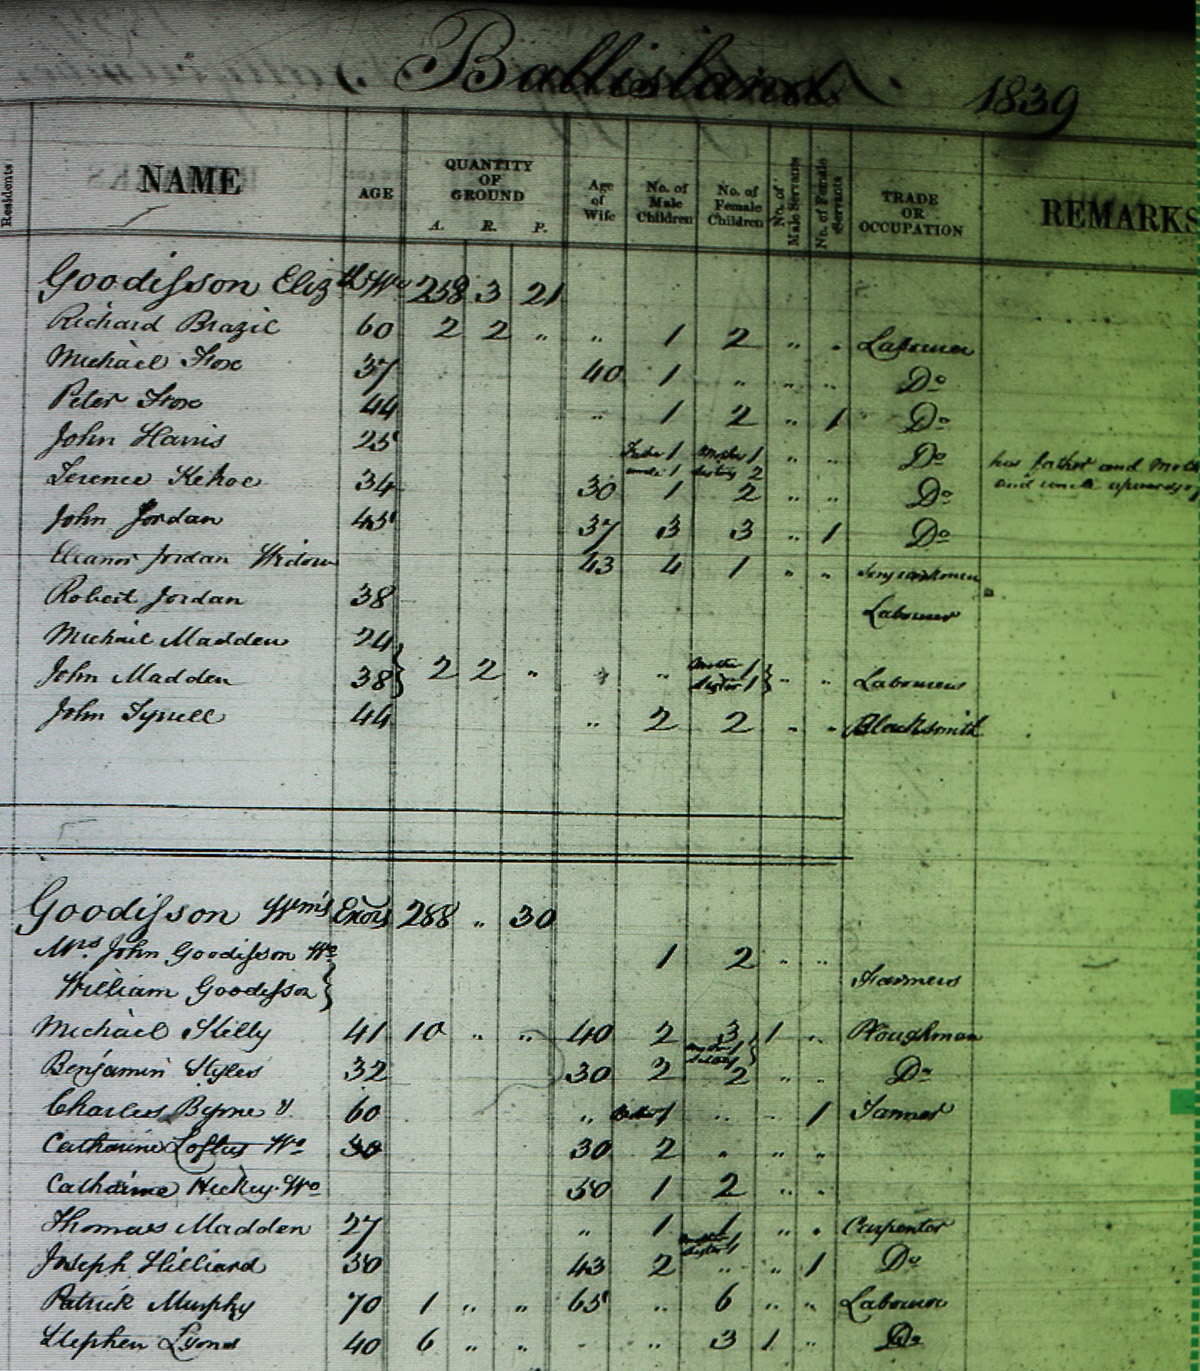 Ballisland 1839
Residents NAME AGE QUANTITY OF GROUND A. R. P. Age of Wife No. of Male Children No. of Female Children No. of Male Servants No. of Female Servants TRADE OR OCCUPATION REMARKS
Goodisson Elizth Wo 238 3 21
Richard Brazil 60 2 2 " " 1 2 " " Labourer
Michael Fox 37 40 1 " " " Do
Peter Fox 44 " 1 2 " 1 Do
John Harris 25 Father 1 Mother 1 " " Do has father and
uncle 1 sisters 2 and uncle upwards of
Terence Kehoe 34 30 1 2 " " Do
John Jordan 45 37 3 3 " 1 Do
Eleanor Jordan Widow 43 4 1 " "
Robert Jordan 38 Labourer
Michael Madden 24
John Madden 38 } 2 2 " " " Mother 1 Sister 1 } " " Labourers
John Tyrrell 44 " 2 2 " " Blacksmith
Goodisson Wm's Exors 288 " 30
Mrs. John Goodisson Wo 1 2 " "
William Goodisson } Farmers
Michael Kelly 41 10 " " 40 2 3 1 " Ploughman
Benjamin Styles 32 30 2 2 " " Do
Charles Byrne 60 " 1 " " 1
Catharine Loftus Wo 30 2 " " "
Catharine Hickey Wo 50 1 2 " "
Thomas Madden 27 " 1 1 " " Carpenter
Joseph Hilliard 30 43 2 " " 1 Do
Patrick Murphy 70 1 " " 65 " 6 " " Labourer
Stephen Lyons 40 6 " " " " 3 1 " Do